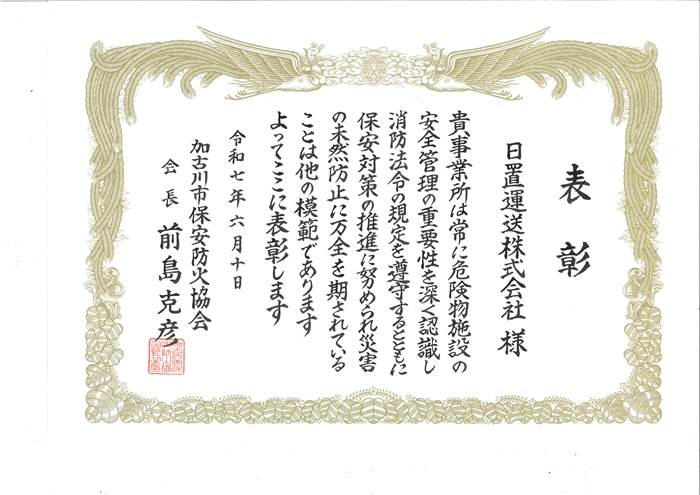 表彰
日置運送株式会社 様
貴事業所は常に危険物施設の
安全管理の重要性を深く認識し
消防法令の規定を遵守するとともに
保安対策の推進に努められ災害
の未然防止に万全を期されている
ことは他の模範であります
よってここに表彰します
令和七年六月十日
加古川市保安防火協会
会長 前島克彦